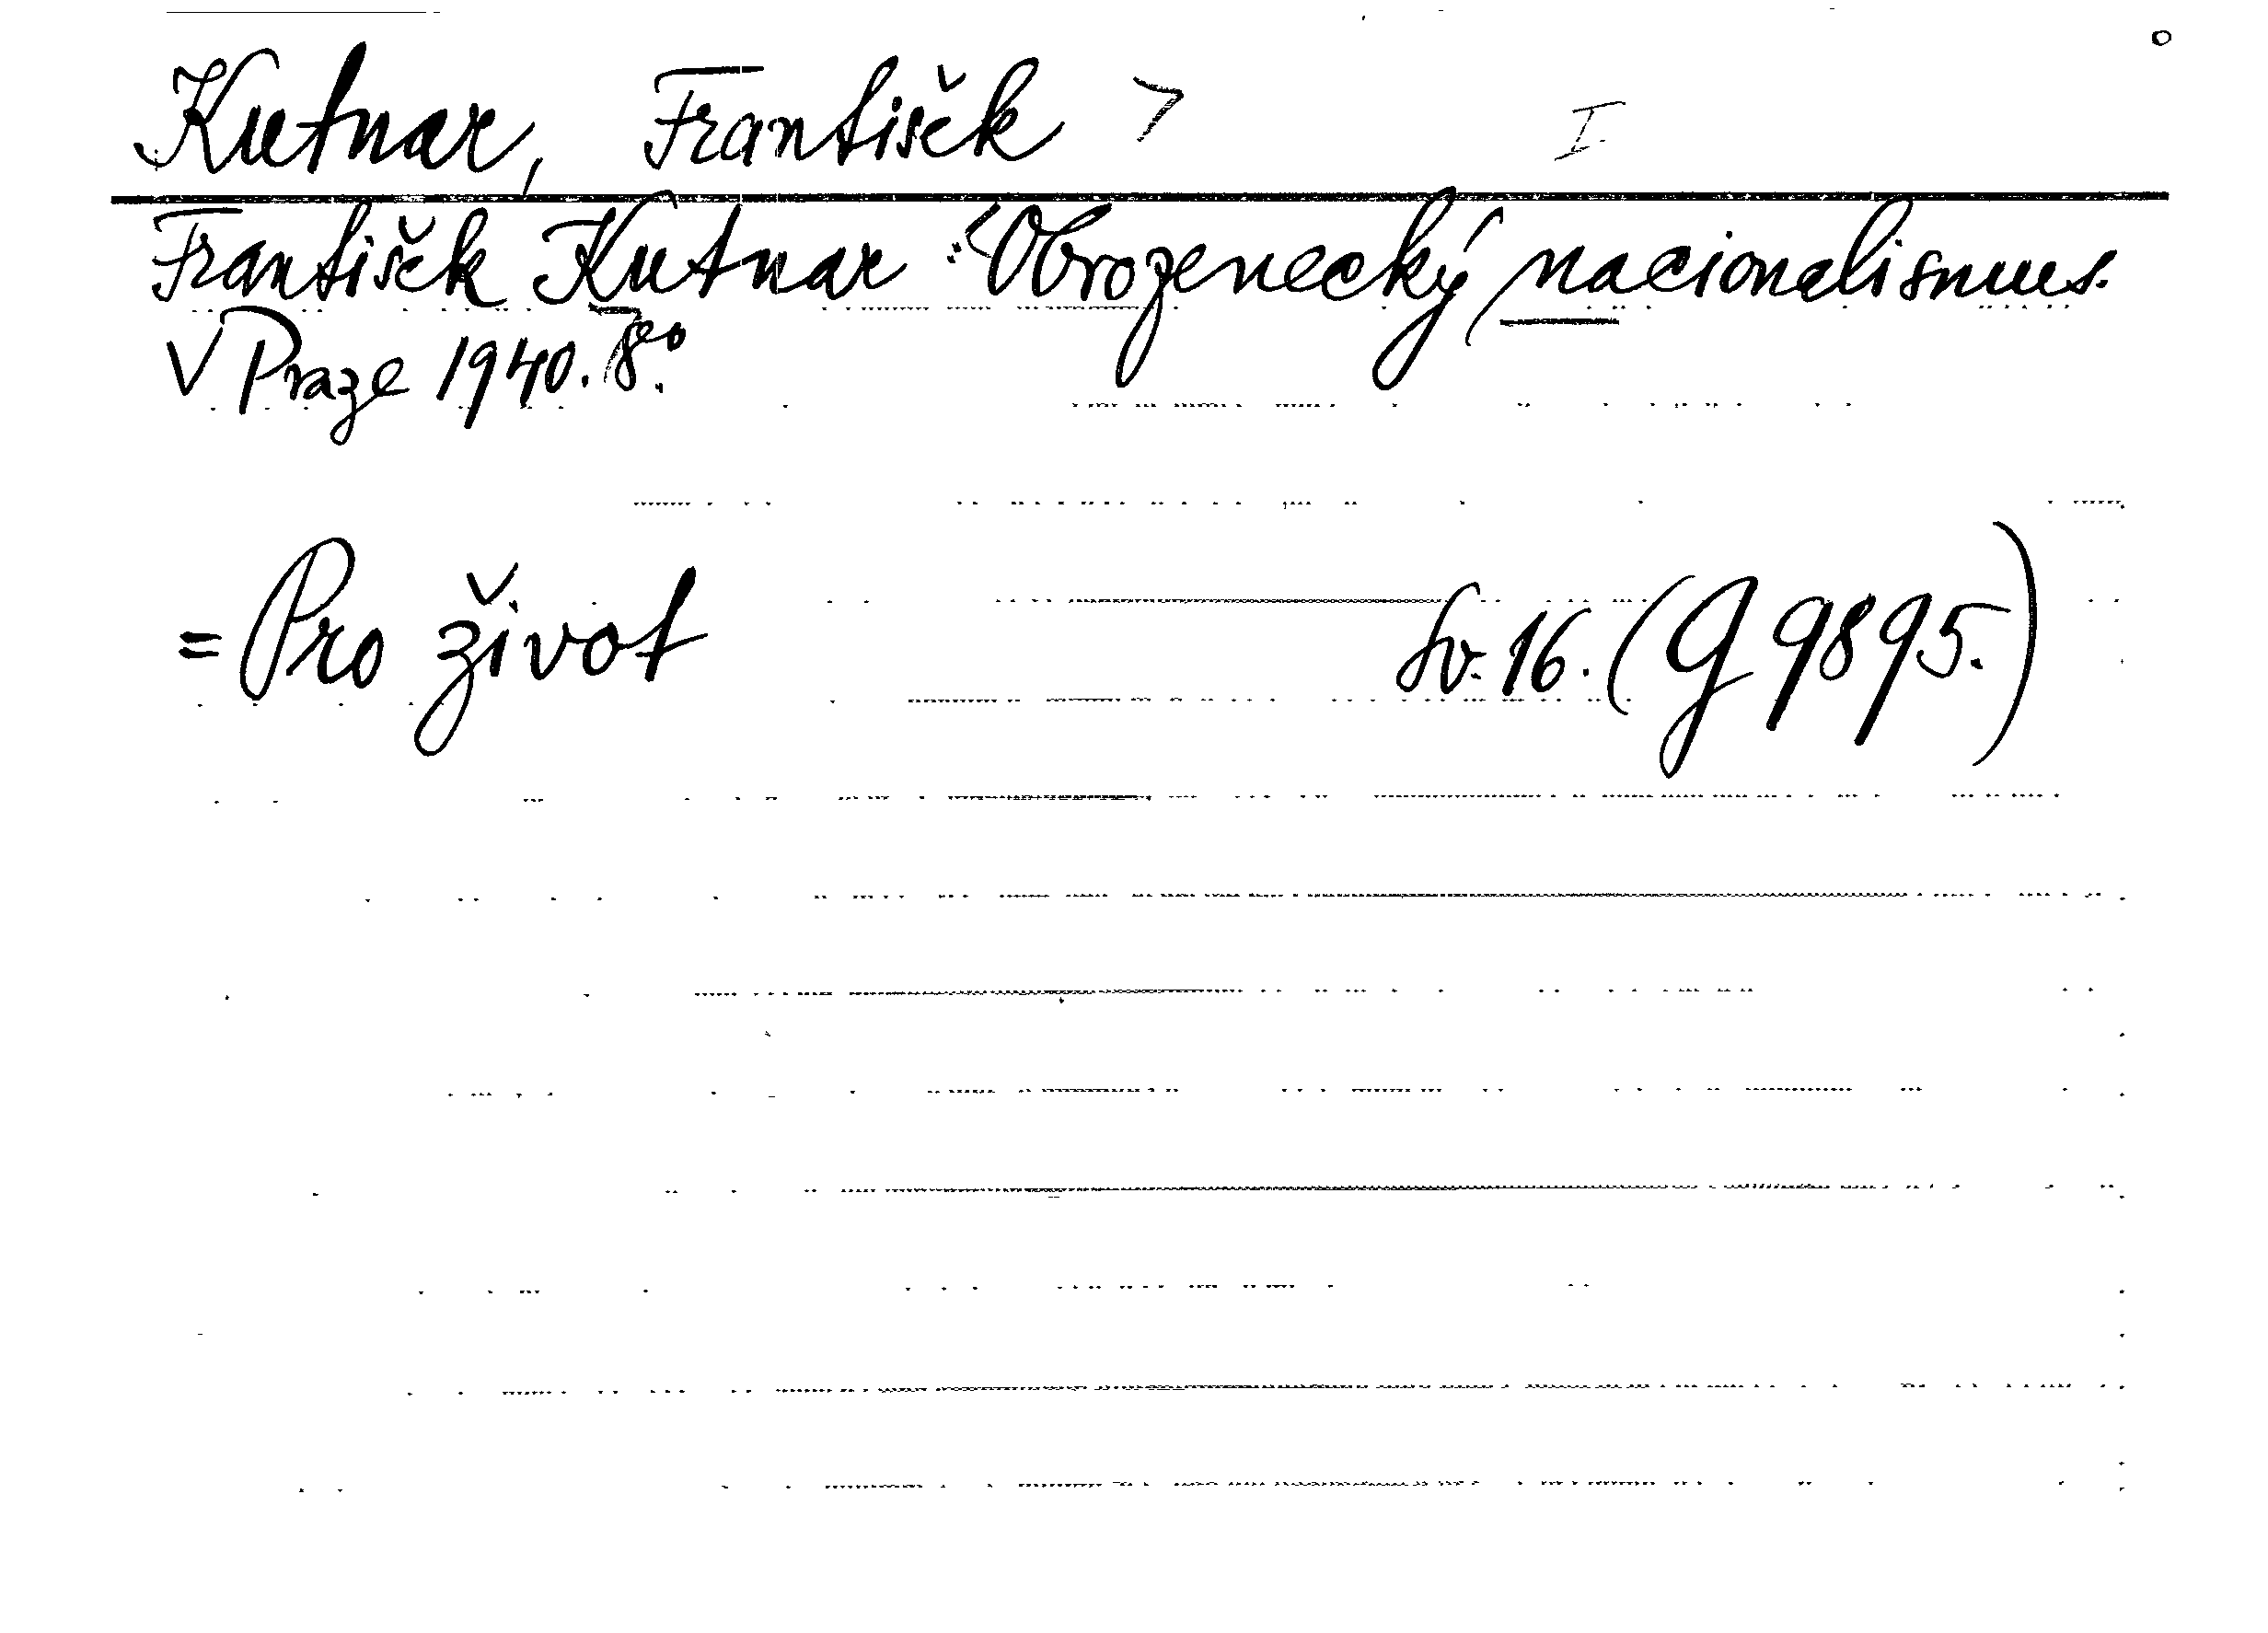 Kutnar, František > I.
František Kutnar: Obrozenecký nacionalismus.
V Praze 1940. 8°.
= Pro život Sv. 16. (G 9895.)